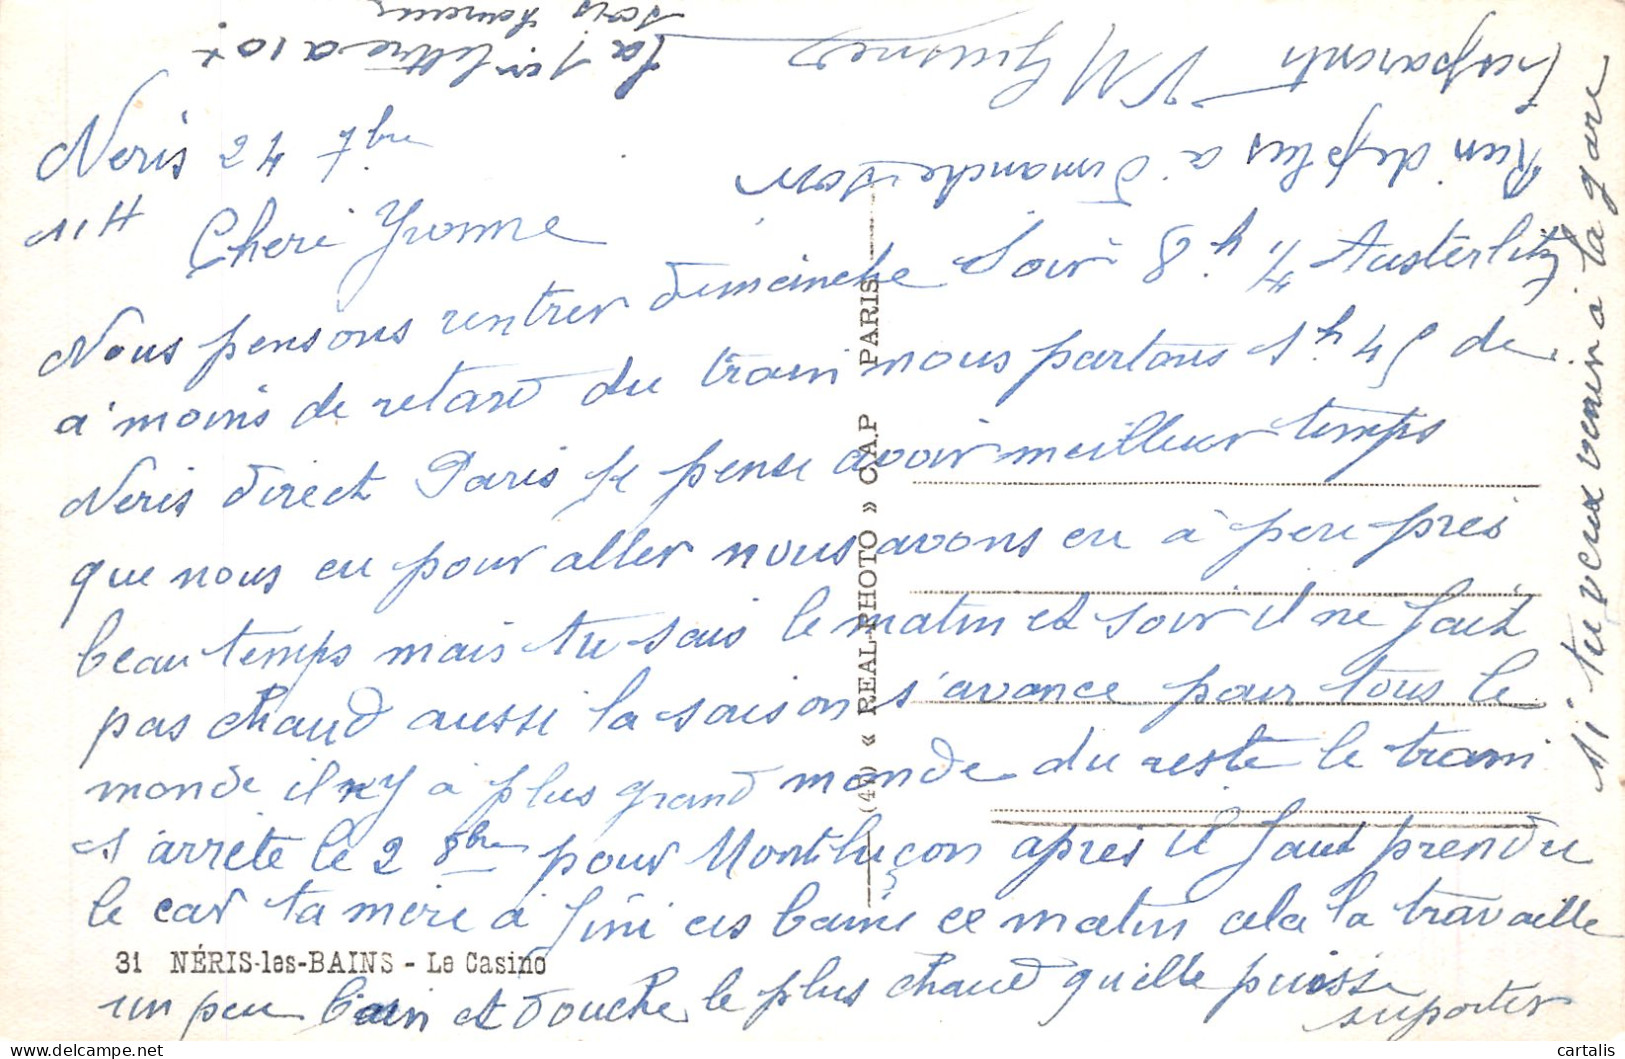 Neris 24 7bre
11H
Cheri Yvonne
Nous pensons rentrer dimainche Soir 8h 1/4 Austerlitz
a moins de retard du train nous partons 1h45 de
Neris direct Paris je pense avoir meilleur temps
que nous eu pour aller nous avons eu à peu près
beau temps mais tu sais le matin et soir il ne fait
pas chaud aussi la saison s'avance pour tous le
monde il ny a plus grand monde du reste le train
s'arrête le 2 8bre pour Montluçon apres il faut prendre
le car ta mère a fini ces bains ce matin cela la travaille
un peu bain et douche le plus chaud qu'elle puisse
suporter
si tu veux venir a la gare
Rien de plus a Dimanche soir
Tes parents VM
la 1er lettre a 10+
31 NÉRIS-les-BAINS - Le Casino
(49) « REAL-PHOTO » C.A.P PARIS
cartalis